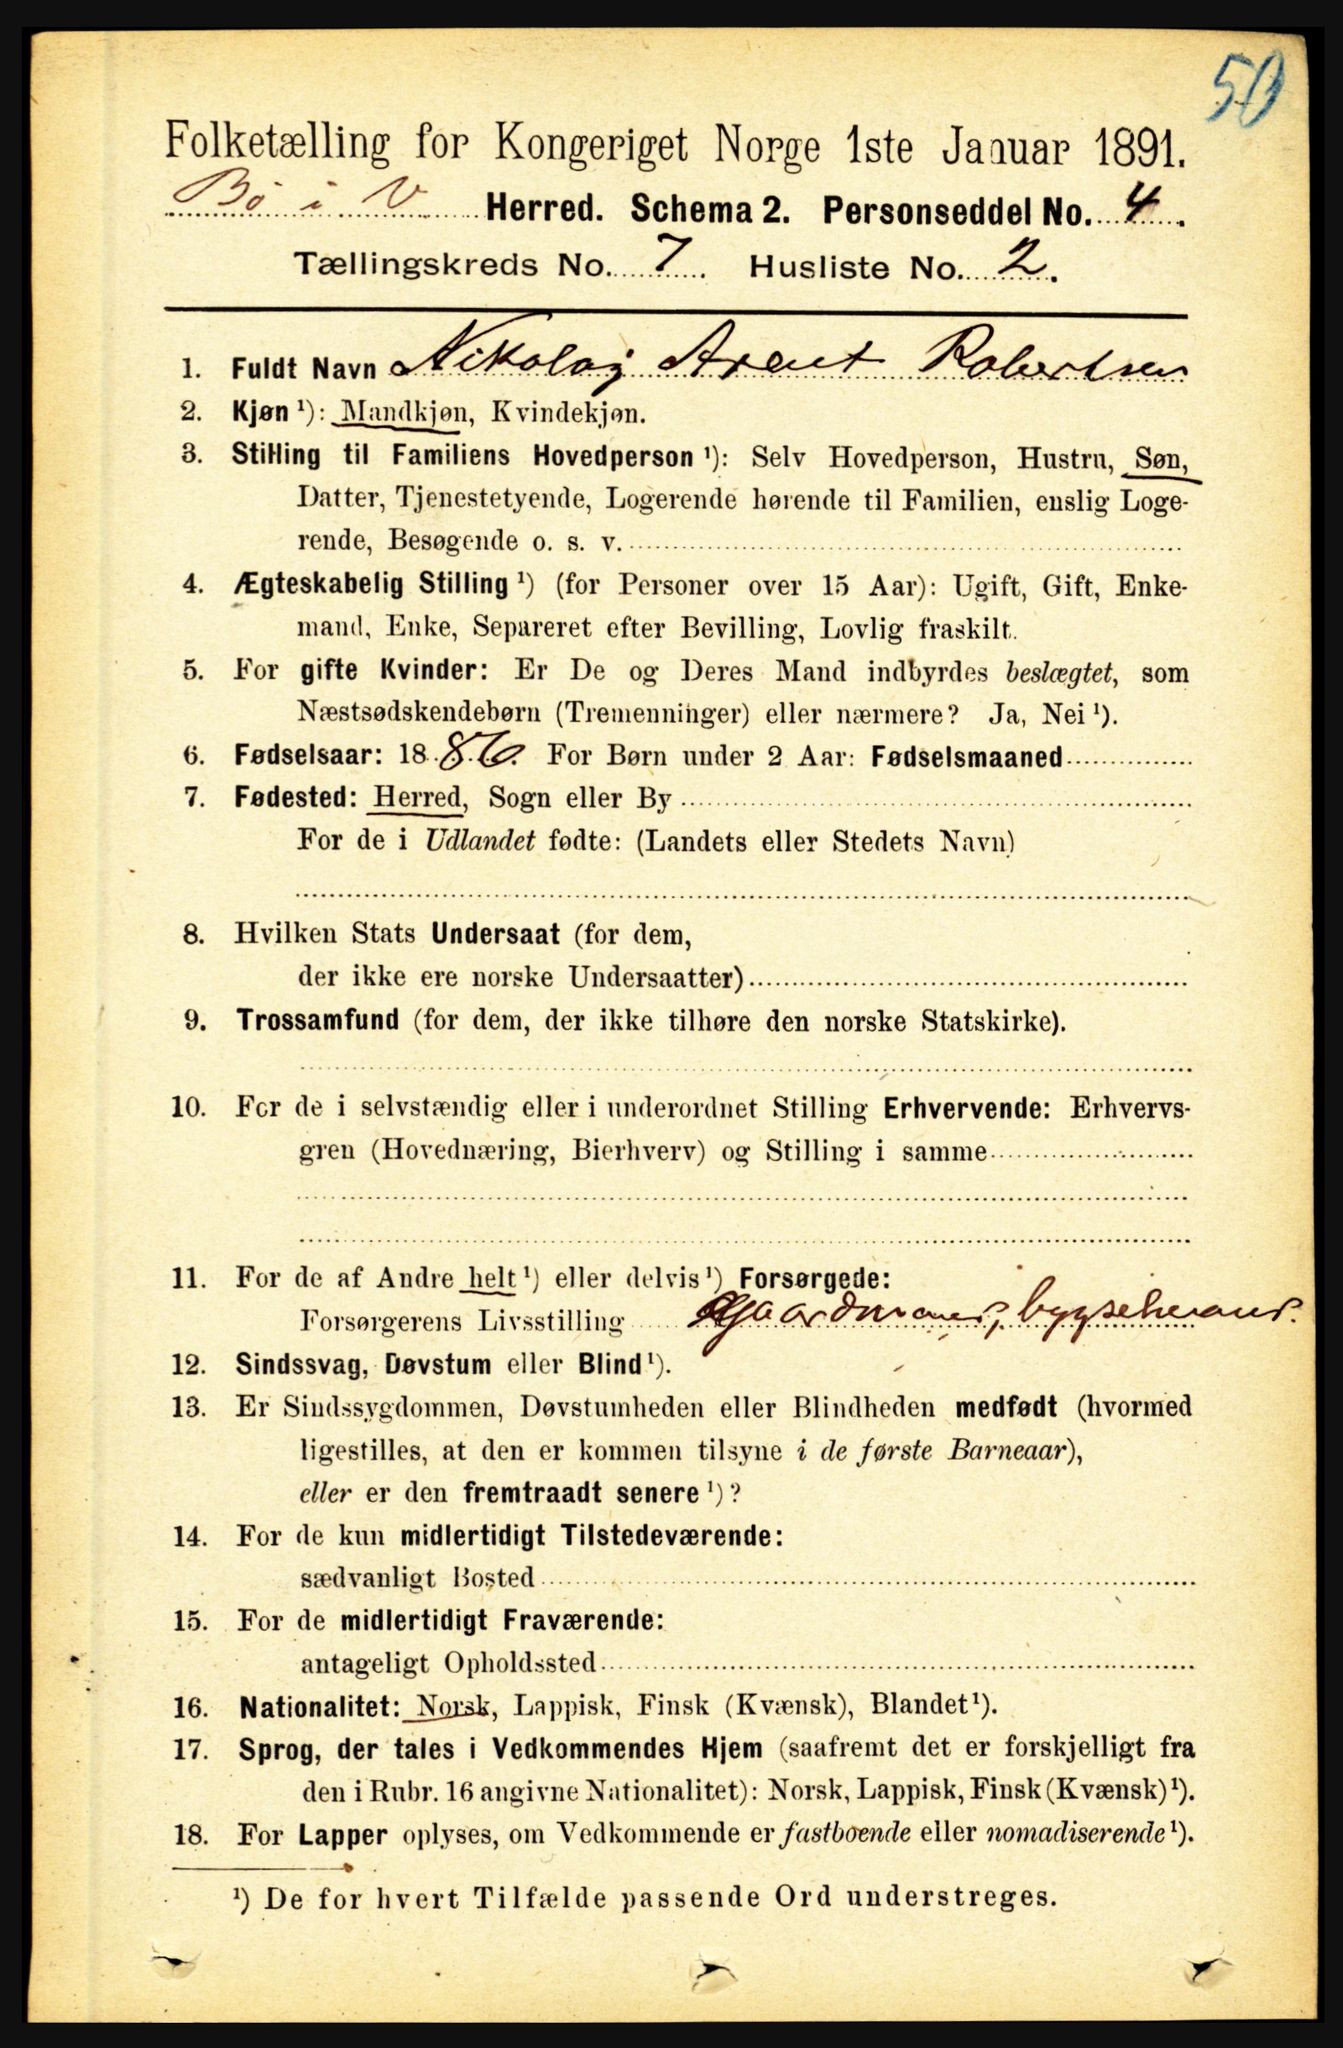 50
Folketælling for Kongeriget Norge 1ste Januar 1891.
Bö i V. Herred. Schema 2. Personseddel No. 4.
Tællingskreds No. 7. Husliste No. 2.
1. Fuldt Navn Nikolaj Arent Robertsen
2. Kjøn ¹): Mandkjøn, Kvindekjøn.
3. Stilling til Familiens Hovedperson ¹): Selv Hovedperson, Hustru, Søn,
Datter, Tjenestetyende, Logerende hørende til Familien, enslig Loge-
rende, Besøgende o. s. v.
4. Ægteskabelig Stilling ¹) (for Personer over 15 Aar): Ugift, Gift, Enke-
mand, Enke, Separeret efter Bevilling, Lovlig fraskilt.
5. For gifte Kvinder: Er De og Deres Mand indbyrdes beslægtet, som
Næstsødskendebørn (Tremenninger) eller nærmere? Ja, Nei ¹).
6. Fødselsaar: 1886. For Børn under 2 Aar: Fødselsmaaned
7. Fødested: Herred, Sogn eller By
For de i Udlandet fødte: (Landets eller Stedets Navn)
8. Hvilken Stats Undersaat (for dem,
der ikke ere norske Undersaatter)
9. Trossamfund (for dem, der ikke tilhøre den norske Statskirke).
10. For de i selvstændig eller i underordnet Stilling Erhvervende: Erhvervs-
gren (Hovednæring, Bierhverv) og Stilling i samme
11. For de af Andre helt ¹) eller delvis ¹) Forsørgede:
Forsørgerens Livsstilling
12. Sindssvag, Døvstum eller Blind ¹).
13. Er Sindssygdommen, Døvstumheden eller Blindheden medfødt (hvormed
ligestilles, at den er kommen tilsyne i de første Barneaar),
eller er den fremtraadt senere ¹)?
14. For de kun midlertidigt Tilstedeværende:
sædvanligt Bosted
15. For de midlertidigt Fraværende:
antageligt Opholdssted
16. Nationalitet: Norsk, Lappisk, Finsk (Kvænsk), Blandet ¹).
17. Sprog, der tales i Vedkommendes Hjem (saafremt det er forskjelligt fra
den i Rubr. 16 angivne Nationalitet): Norsk, Lappisk, Finsk (Kvænsk) ¹).
18. For Lapper oplyses, om Vedkommende er fastboende eller nomadiserende ¹).
¹) De for hvert Tilfælde passende Ord understreges.